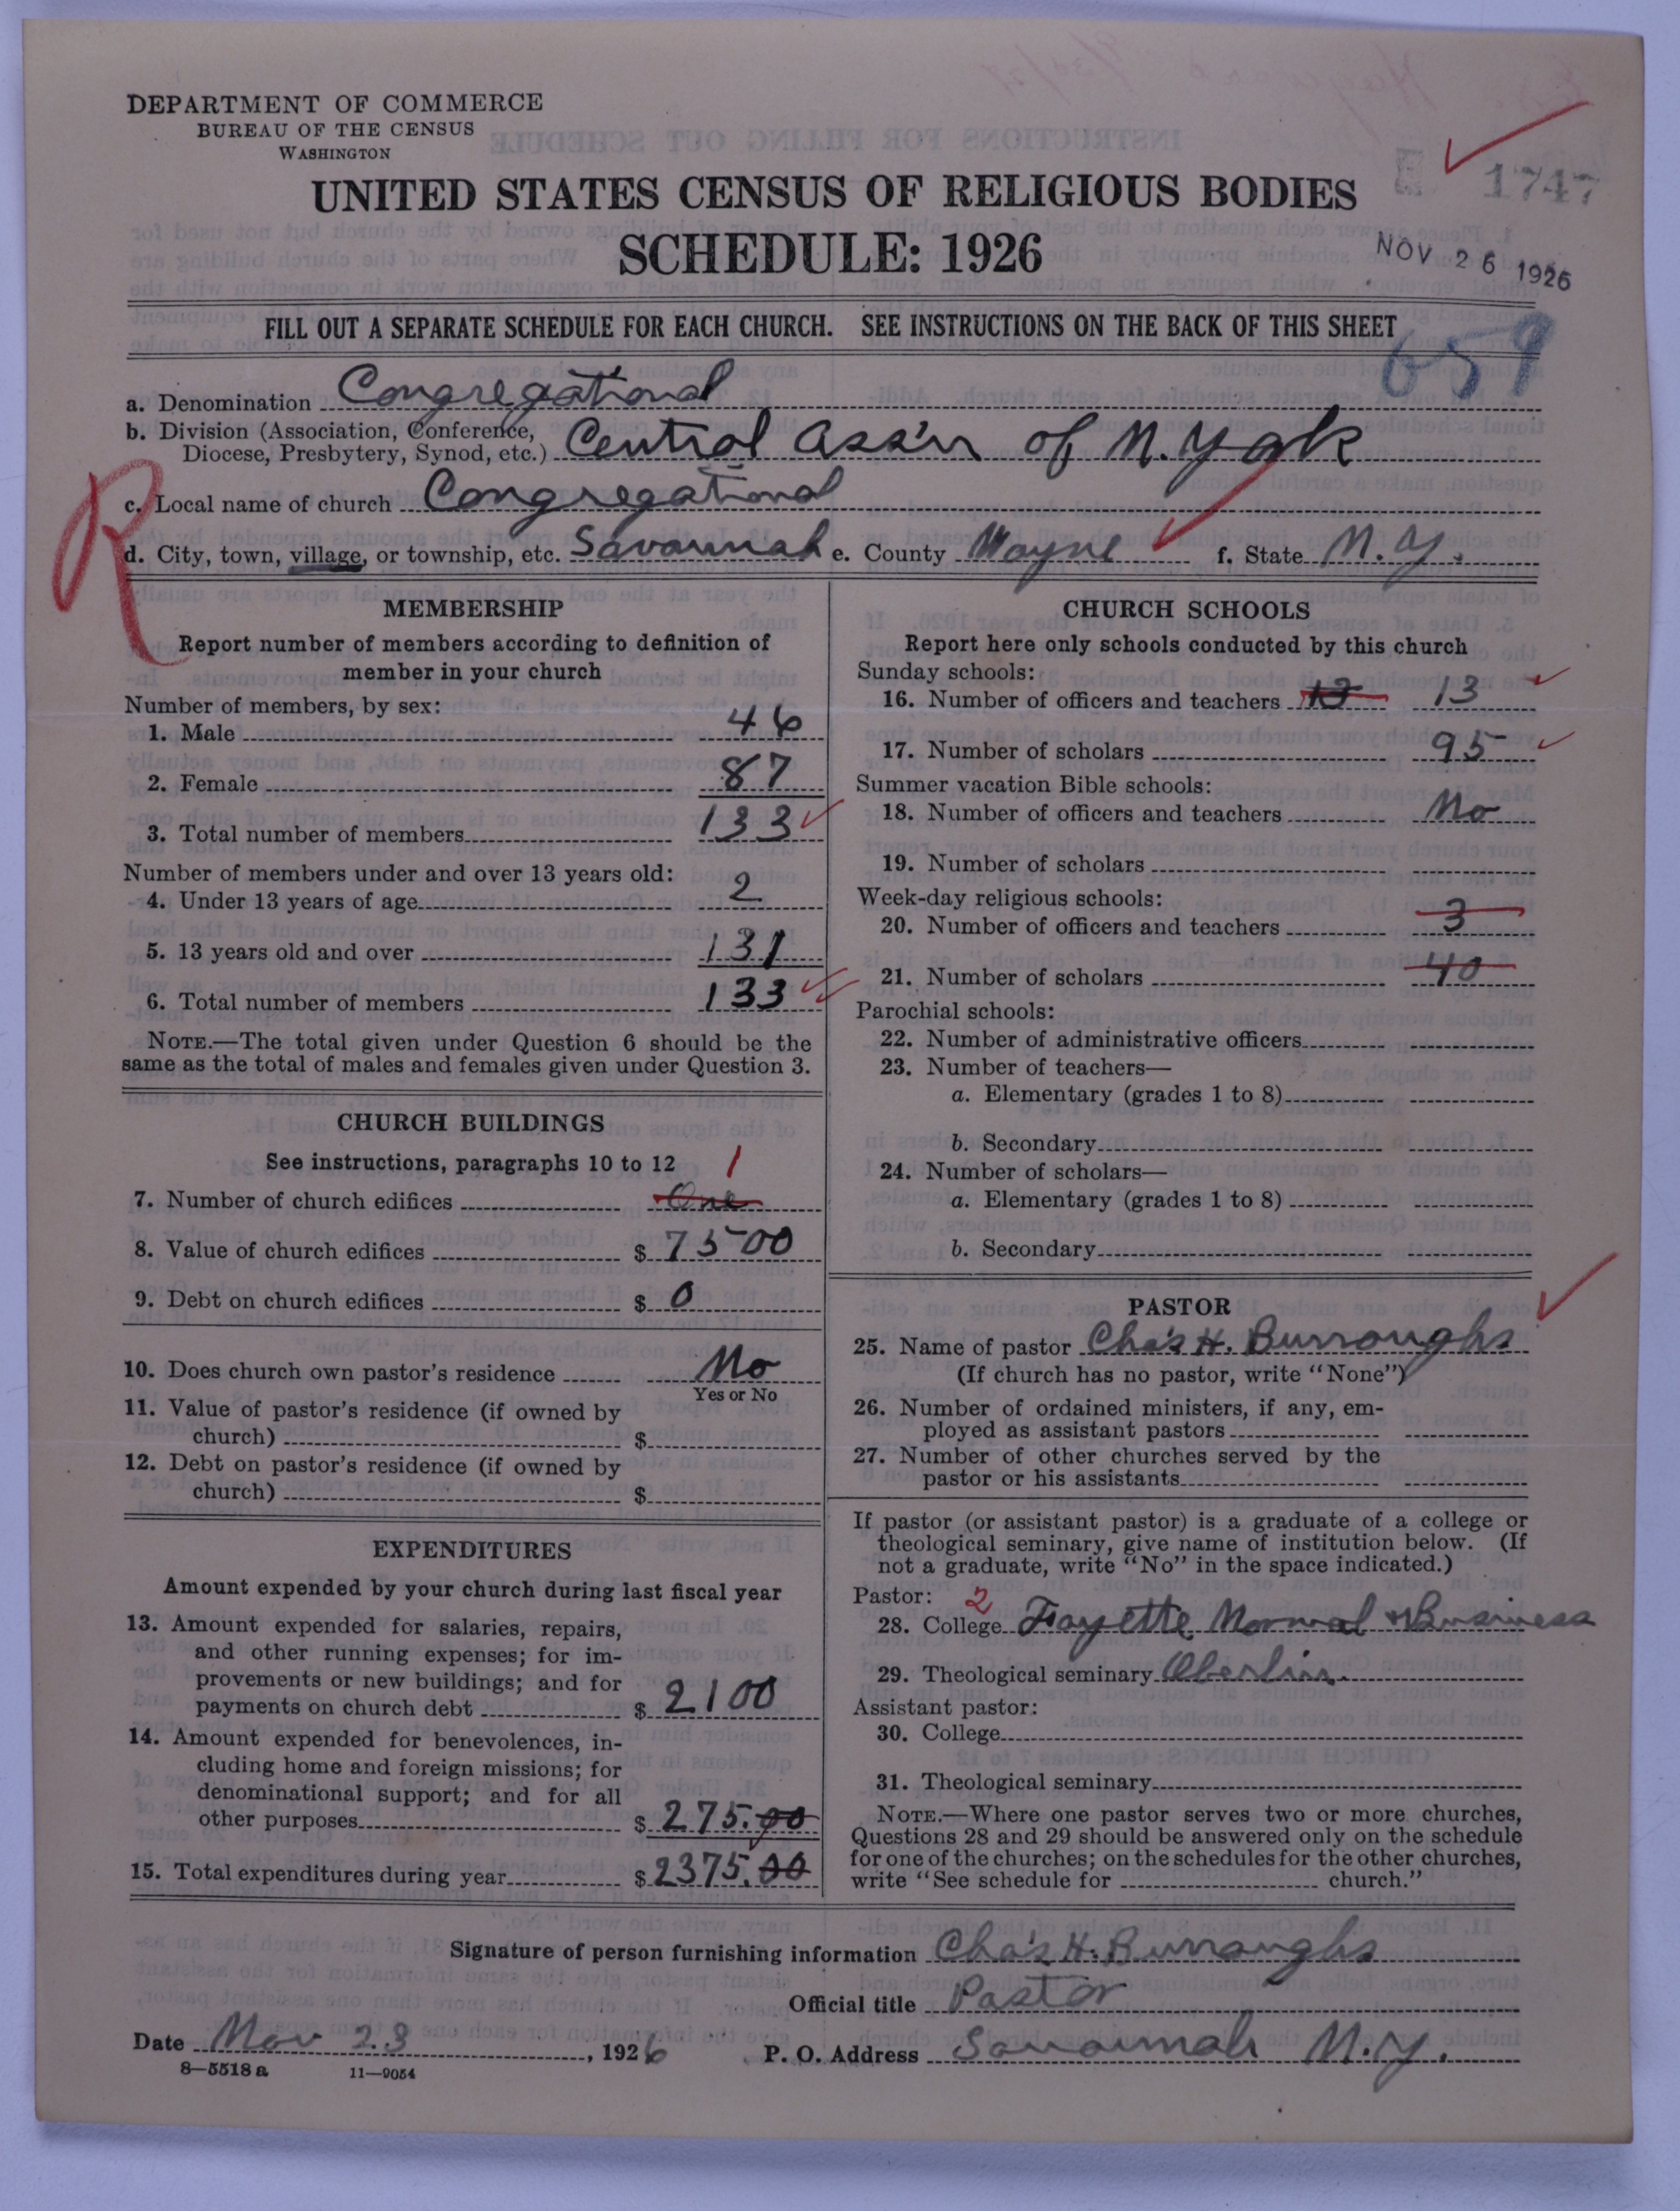 DEPARTMENT OF COMMERCE
BUREAU OF THE CENSUS
WASHINGTON
UNITED STATES CENSUS OF RELIGIOUS BODIES
1747
SCHEDULE: 1926
NOV 26 1926
FILL OUT A SEPARATE SCHEDULE FOR EACH CHURCH. SEE INSTRUCTIONS ON THE BACK OF THIS SHEET
659
a. Denomination Congregational
b. Division (Association, Conference, Diocese, Presbytery, Synod, etc.) Central Ass'n of N. York
c. Local name of church Congregational
R
d. City, town, village, or township, etc. Savannah e. County Wayne f. State N.Y.
MEMBERSHIP
Report number of members according to definition of
member in your church
Number of members, by sex:
1. Male 46
2. Female 87
3. Total number of members 133
Number of members under and over 13 years old:
4. Under 13 years of age 2
5. 13 years old and over 131
6. Total number of members 133
NOTE.—The total given under Question 6 should be the
same as the total of males and females given under Question 3.
CHURCH BUILDINGS
See instructions, paragraphs 10 to 12 1
7. Number of church edifices One
8. Value of church edifices $ 7500
9. Debt on church edifices $ 0
10. Does church own pastor's residence No
Yes or No
11. Value of pastor's residence (if owned by
church) $
12. Debt on pastor's residence (if owned by
church) $
EXPENDITURES
Amount expended by your church during last fiscal year
13. Amount expended for salaries, repairs,
and other running expenses; for im-
provements or new buildings; and for
payments on church debt $ 2100
14. Amount expended for benevolences, in-
cluding home and foreign missions; for
denominational support; and for all
other purposes $ 275.00
15. Total expenditures during year $ 2375.00
CHURCH SCHOOLS
Report here only schools conducted by this church
Sunday schools:
16. Number of officers and teachers 13 13
17. Number of scholars 95
Summer vacation Bible schools:
18. Number of officers and teachers No
19. Number of scholars
Week-day religious schools:
20. Number of officers and teachers 3
21. Number of scholars 40
Parochial schools:
22. Number of administrative officers
23. Number of teachers—
a. Elementary (grades 1 to 8)
b. Secondary
24. Number of scholars—
a. Elementary (grades 1 to 8)
b. Secondary
PASTOR
25. Name of pastor Cha's H. Burroughs
(If church has no pastor, write "None")
26. Number of ordained ministers, if any, em-
ployed as assistant pastors
27. Number of other churches served by the
pastor or his assistants
If pastor (or assistant pastor) is a graduate of a college or
theological seminary, give name of institution below. (If
not a graduate, write "No" in the space indicated.)
Pastor: 2
28. College Fayette Normal & Business
29. Theological seminary Oberlin.
Assistant pastor:
30. College
31. Theological seminary
NOTE.—Where one pastor serves two or more churches,
Questions 28 and 29 should be answered only on the schedule
for one of the churches; on the schedules for the other churches,
write "See schedule for church."
Signature of person furnishing information Cha's H. Burroughs
Official title Pastor
Date Nov 23, 1926 P. O. Address Savannah N.Y.
8—5518a 11—9054